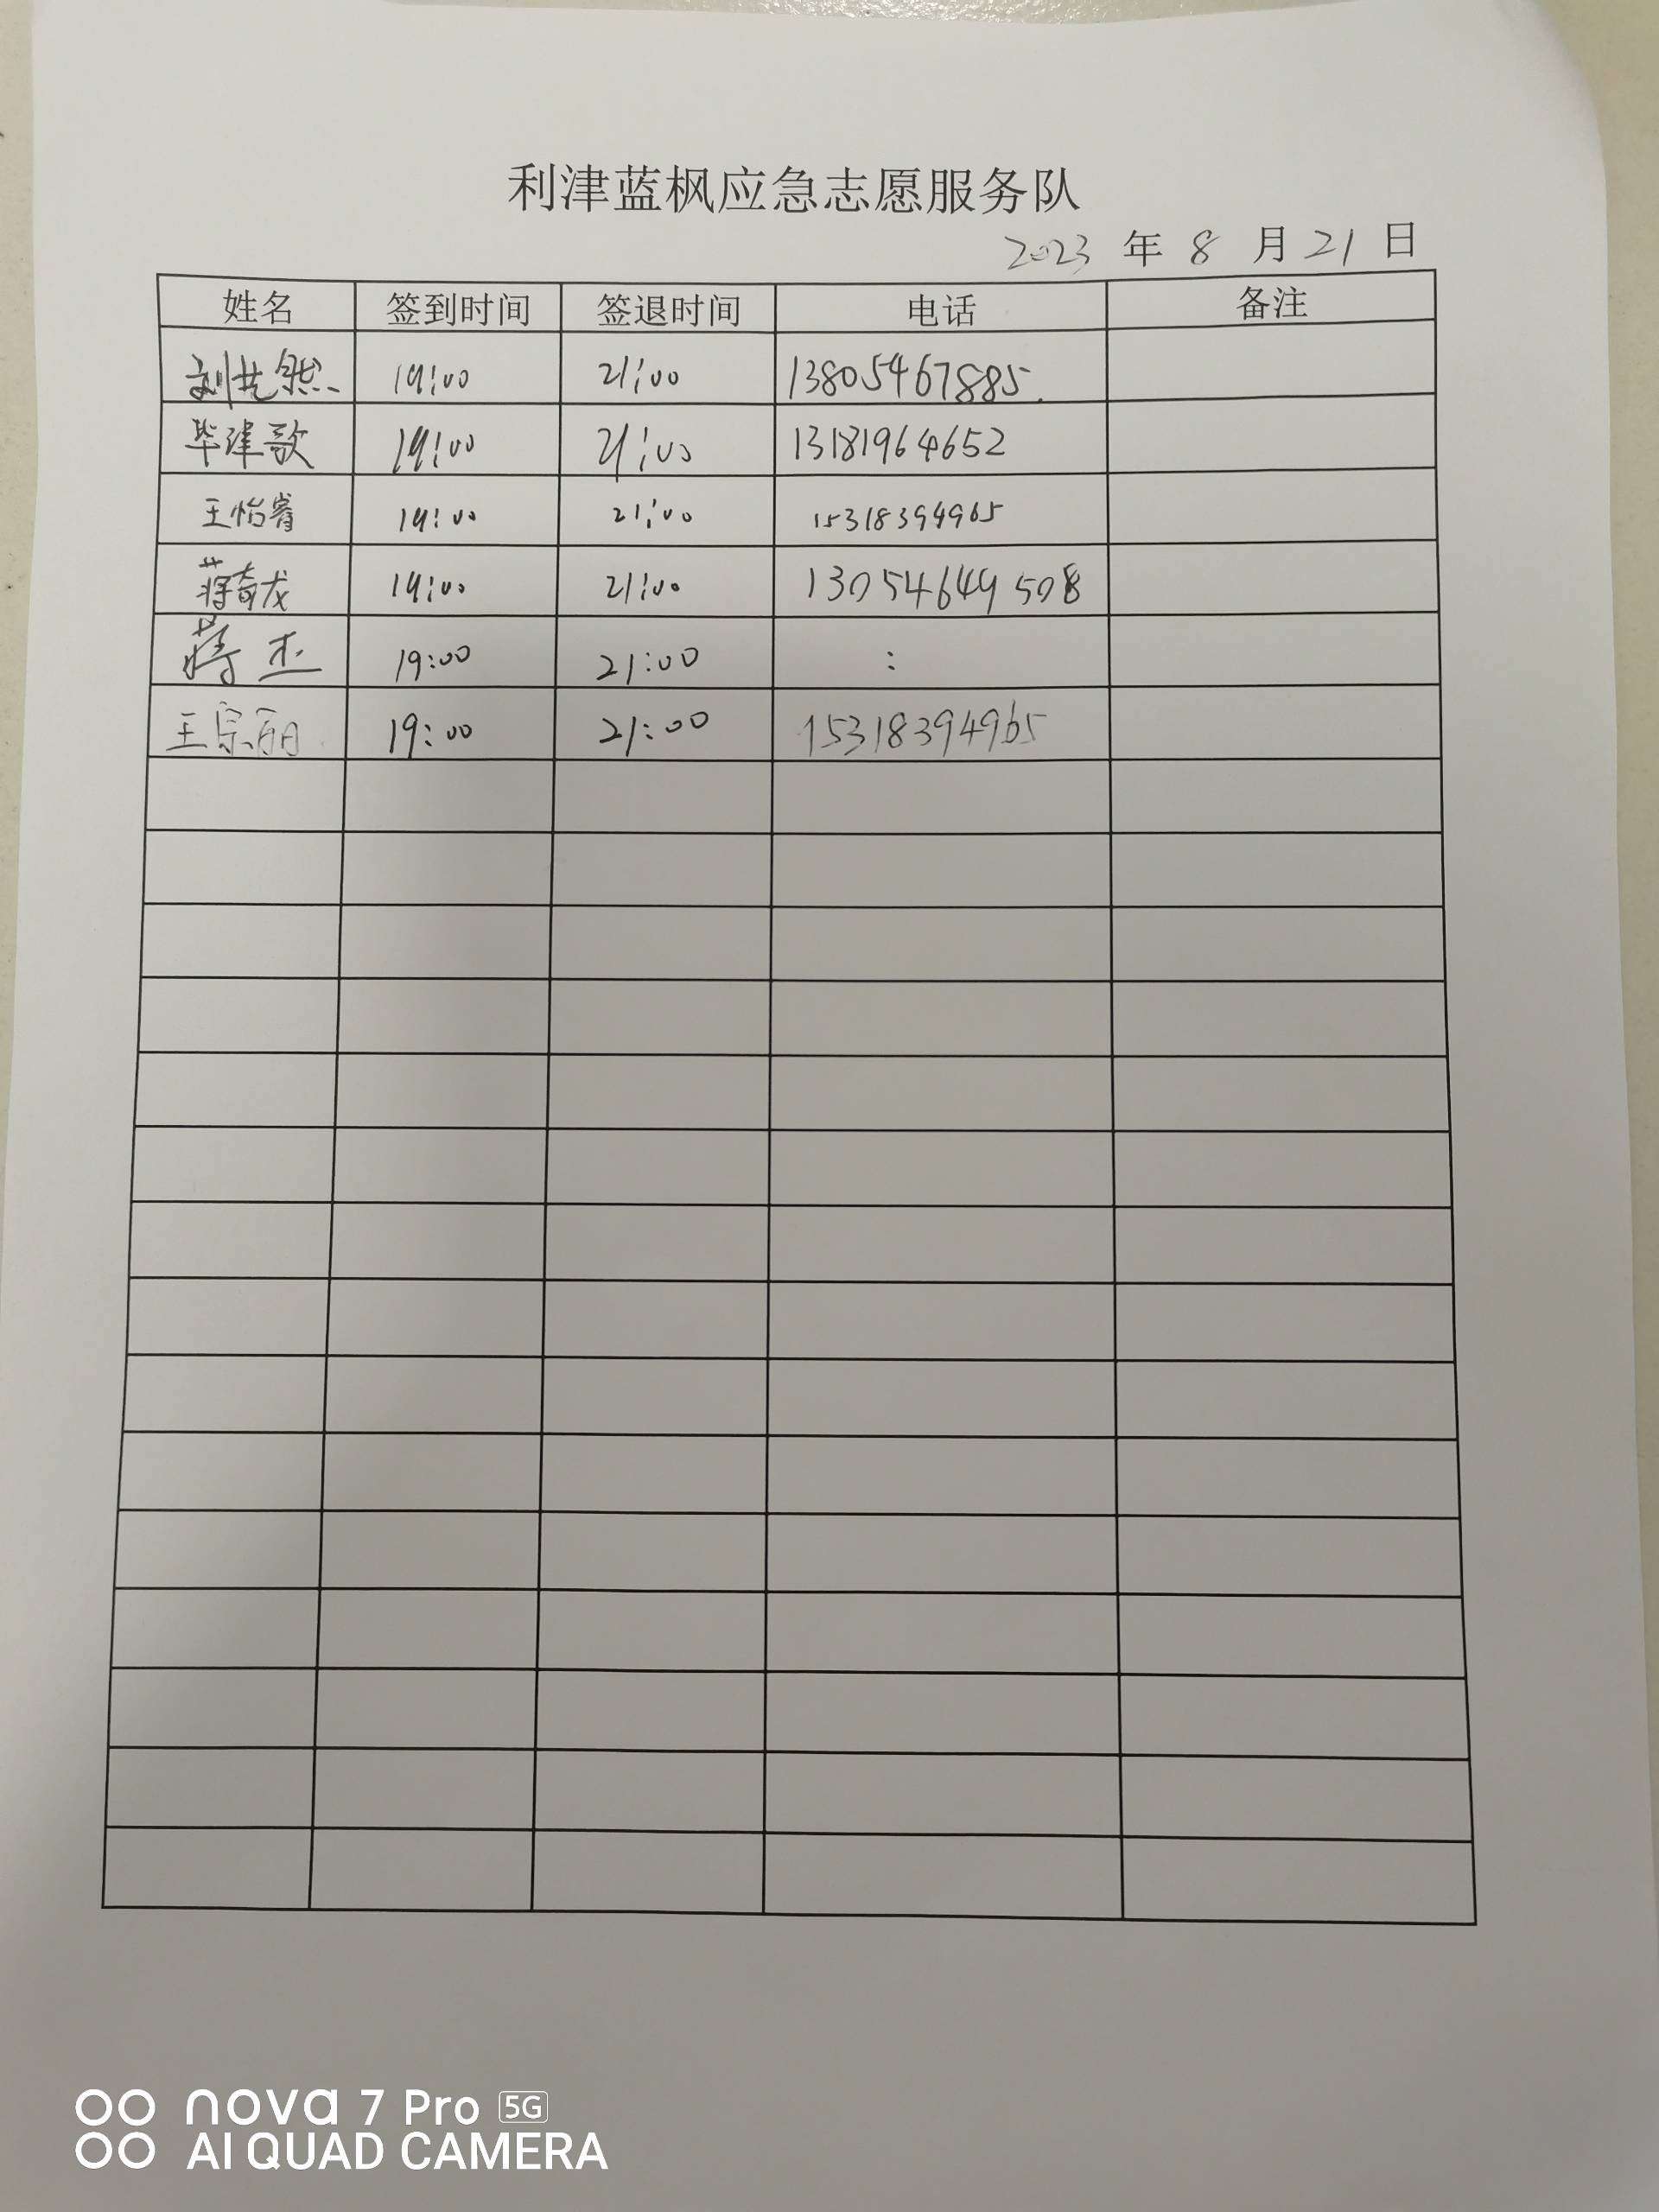 利津蓝枫应急志愿服务队
2023 年 8 月 21 日
姓名 签到时间 签退时间 电话 备注
刘艺然 19:00 21:00 13805467885
毕津歌 19:00 21:00 13181964652
王怡睿 19:00 21:00 15318394965
蒋奇龙 19:00 21:00 13054649508
蒋杰 19:00 21:00 :
王宗丽 19:00 21:00 15318394965
nova 7 Pro 5G
AI QUAD CAMERA